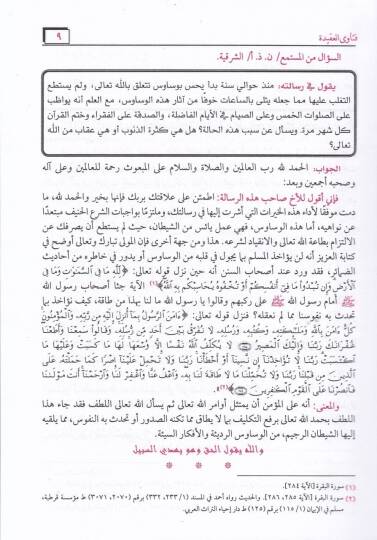 فتاوى العقيدة
٩
السؤال من المستمع/ ن. ذ. أ/ الشرقية.
يقول في رسالته: منذ حوالي سنة بدأ يحس بوساوس تتعلق بالله تعالى، ولم يستطع
التغلب عليها مما جعله يتلى بالساعات خوفًا من آثار هذه الوساوس، مع العلم أنه يواظب
على الصلوات الخمس وعلى الصيام في الأيام الفاضلة، والصدقة على الفقراء وختم القرآن
كل شهر مرة. ويسأل عن سبب هذه الحالة؟ هل هي كثرة الذنوب أو هي عقاب من الله
تعالى؟
الجواب: الحمد لله رب العالمين والصلاة والسلام على المبعوث رحمة للعالمين وعلى آله
وصحبه أجمعين وبعد:
فإني أقول للأخ صاحب هذه الرسالة: اطمئن على علاقتك بربك فإنها بخير والحمد لله، ما
دمت موفقًا لأداء هذه الخيرات التي أشرت إليها في رسالتك، وملتزمًا بواجبات الشرع الحنيف مبتعدًا
عن نواهيه، أما هذه الوساوس، فهي عمل يائس من الشيطان، حيث لم يستطع أن يصرفك عن
الالتزام بطاعة الله تعالى والانقياد لشرعه. هذا ومن جهة أخرى فإن المولى تبارك وتعالى أوضح في
كتابة العزيز أنه لن يؤاخذ المسلم بما يجول في قلبه من الوساوس أو يدور في خاطره من أحاديث
الضمائر، فقد ورد عند أصحاب السنن أنه حين نزل قوله تعالى: ﴿لِلَّهِ مَا فِي السَّمَوَتِ وَمَا فِي
الْأَرْضِ وَإِن تُبْدُوا مَا فِي أَنفُسِكُمْ أَوْ تُخْفُوهُ يُحَاسِبْكُم بِهِ اللَّهُ﴾(١) الآية جثا أصحاب رسول الله
ﷺ أمام رسول الله ﷺ على ركبهم وقالوا يا رسول الله ما لنا بهذا من طاقة، كيف نؤاخذ بما
تحدث به نفوسنا مما لم نعقله؟ فنزل قوله تعالى: ﴿ءَامَنَ الرَّسُولُ بِمَا أُنزِلَ إِلَيْهِ مِن رَّبِّهِ، وَالْمُؤْمِنُونَ
كُلٌّ ءَامَنَ بِاللَّهِ وَمَلَٰئِكَتِهِ، وَكُتُبِهِ، وَرُسُلِهِ، لَا نُفَرِّقُ بَيْنَ أَحَدٍ مِّن رُّسُلِهِ، وَقَالُوا سَمِعْنَا وَأَطَعْنَا
غُفْرَانَكَ رَبَّنَا وَإِلَيْكَ الْمَصِيرُ لَا يُكَلِّفُ اللَّهُ نَفْسًا إِلَّا وُسْعَهَا لَهَا مَا كَسَبَتْ وَعَلَيْهَا مَا
اكْتَسَبَتْ رَبَّنَا لَا تُؤَاخِذْنَا إِن نَّسِينَا أَوْ أَخْطَأْنَا رَبَّنَا وَلَا تَحْمِلْ عَلَيْنَا إِصْرًا كَمَا حَمَلْتَهُ عَلَى
الَّذِينَ مِن قَبْلِنَا رَبَّنَا وَلَا تُحَمِّلْنَا مَا لَا طَاقَةَ لَنَا بِهِ، وَاعْفُ عَنَّا وَاغْفِرْ لَنَا وَارْحَمْنَا أَنتَ مَوْلَىٰنَا
فَانصُرْنَا عَلَى الْقَوْمِ الْكَافِرِينَ﴾(٢).
والمعنى: أنه على المؤمن أن يمتثل أوامر الله تعالى ثم يسأل الله تعالى اللطف فقد جاء هذا
اللطف بحمد الله تعالى برفع التكليف بما لا يطاق مما تكنه الصدور أو تحدث به النفوس، مما يلقيه
إليها الشيطان الرجيم، من الوساوس الرديئة والأفكار السيئة.
والله يقول الحق وهو يهدي السبيل
* * *
(١) سورة البقرة [الآية ٢٨٤].
(٢) سورة البقرة [الآية ٢٨٥، ٢٨٦]. والحديث رواه أحمد في المسند (١/ ٢٣٣، ٣٣٢) برقم (٢٠٧٠، ٣٠٧١) ط مؤسسة قرطبة،
مسلم في الإيمان (١/ ١١٥) برقم (١٢٥) ط دار إحياء التراث العربي.